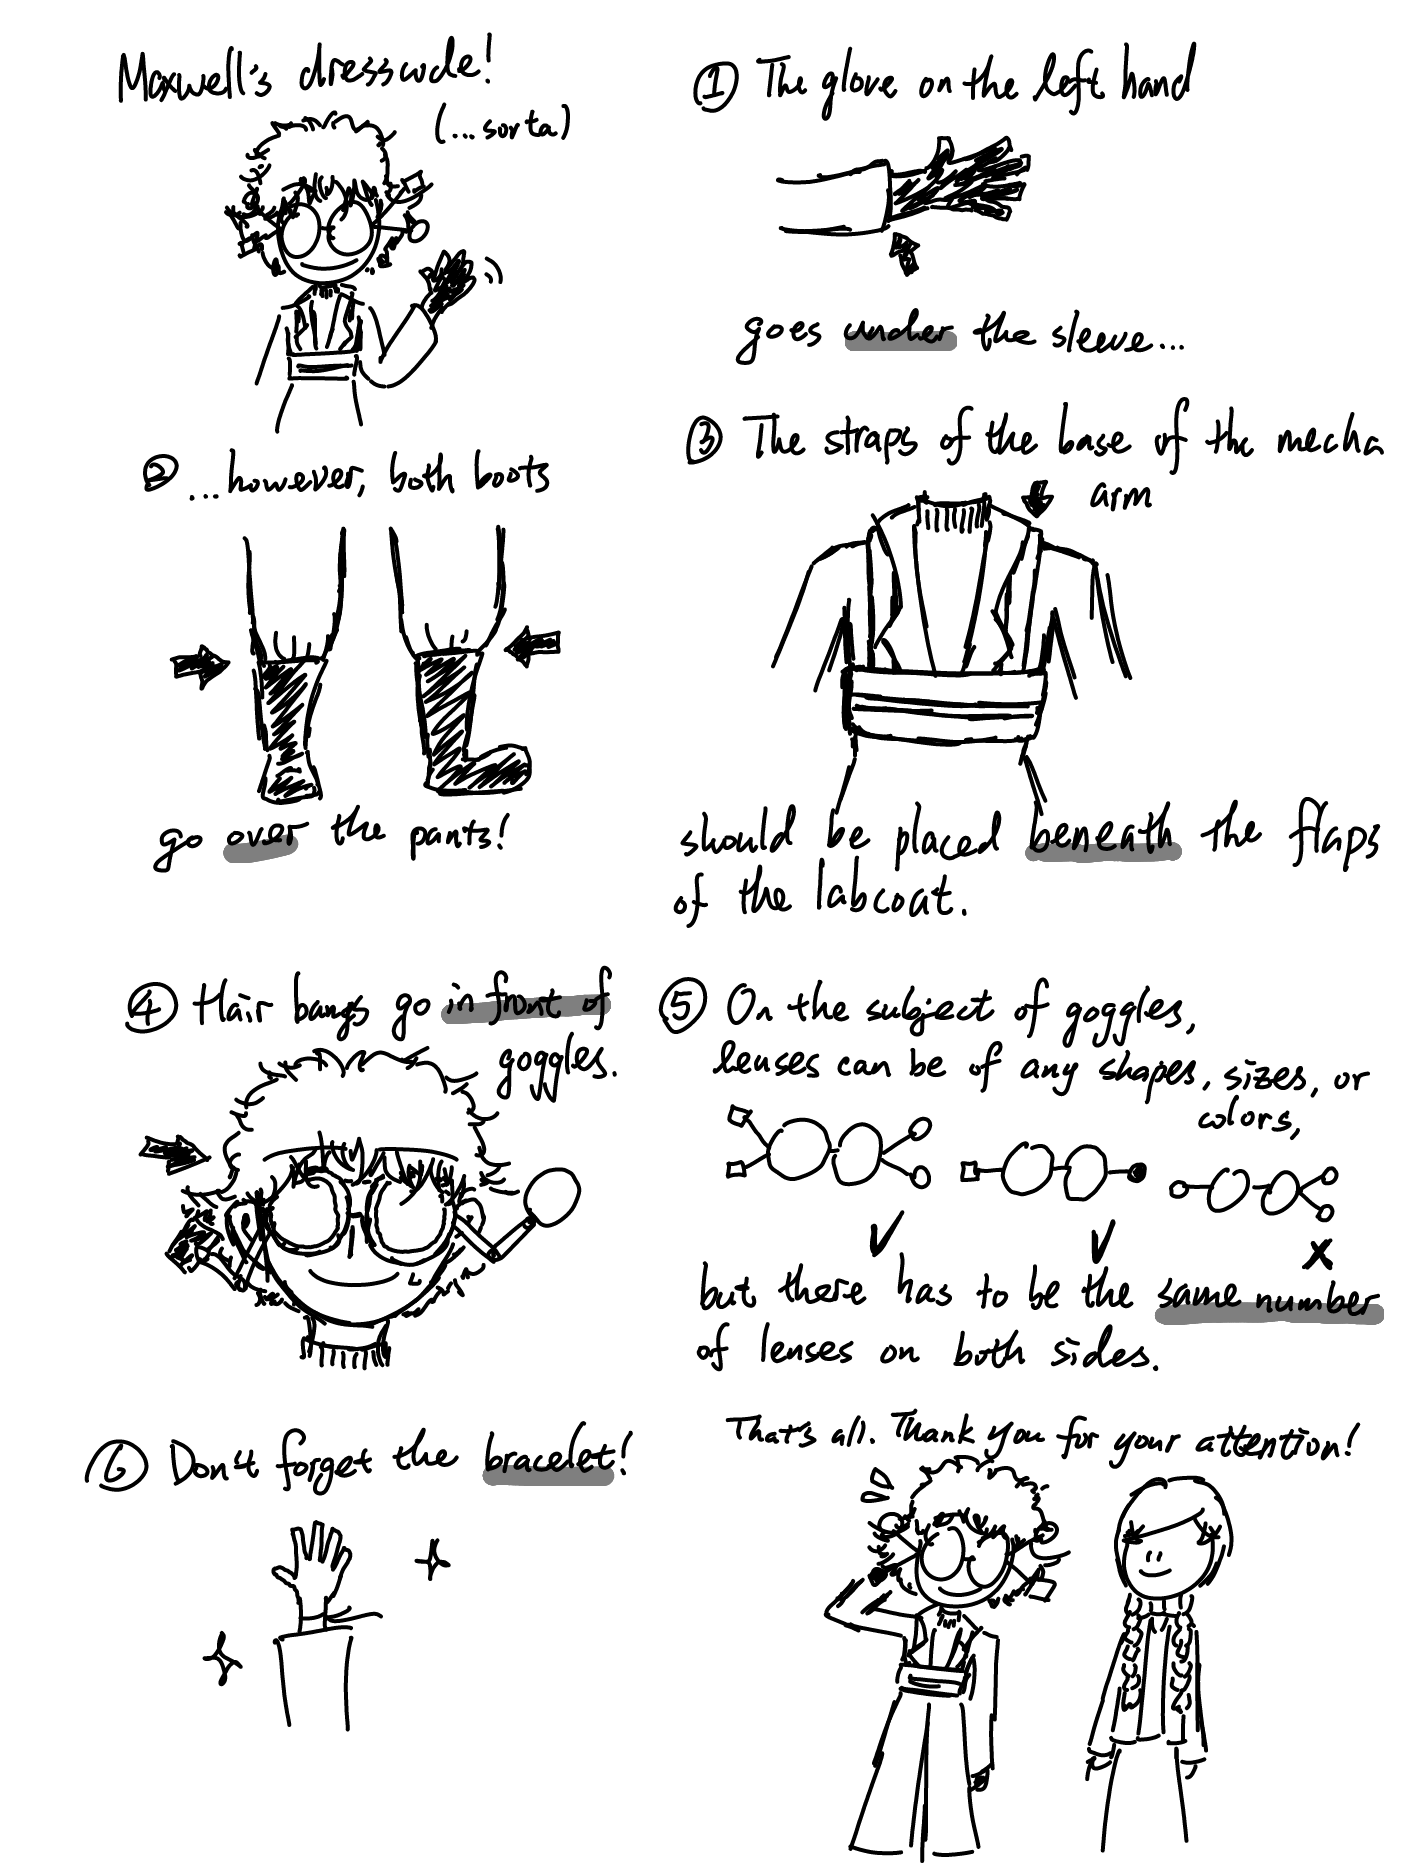 Maxwell's dresscode!
(...sorta)
① The glove on the left hand
goes under the sleeve...
② ...however, both boots
go over the pants!
③ The straps of the base of the mecha
arm
should be placed beneath the flaps
of the labcoat.
④ Hair bangs go in front of
goggles.
⑤ On the subject of goggles,
lenses can be of any shapes, sizes, or
colors,
but there has to be the same number
of lenses on both sides.
⑥ Don't forget the bracelet!
That's all. Thank you for your attention!